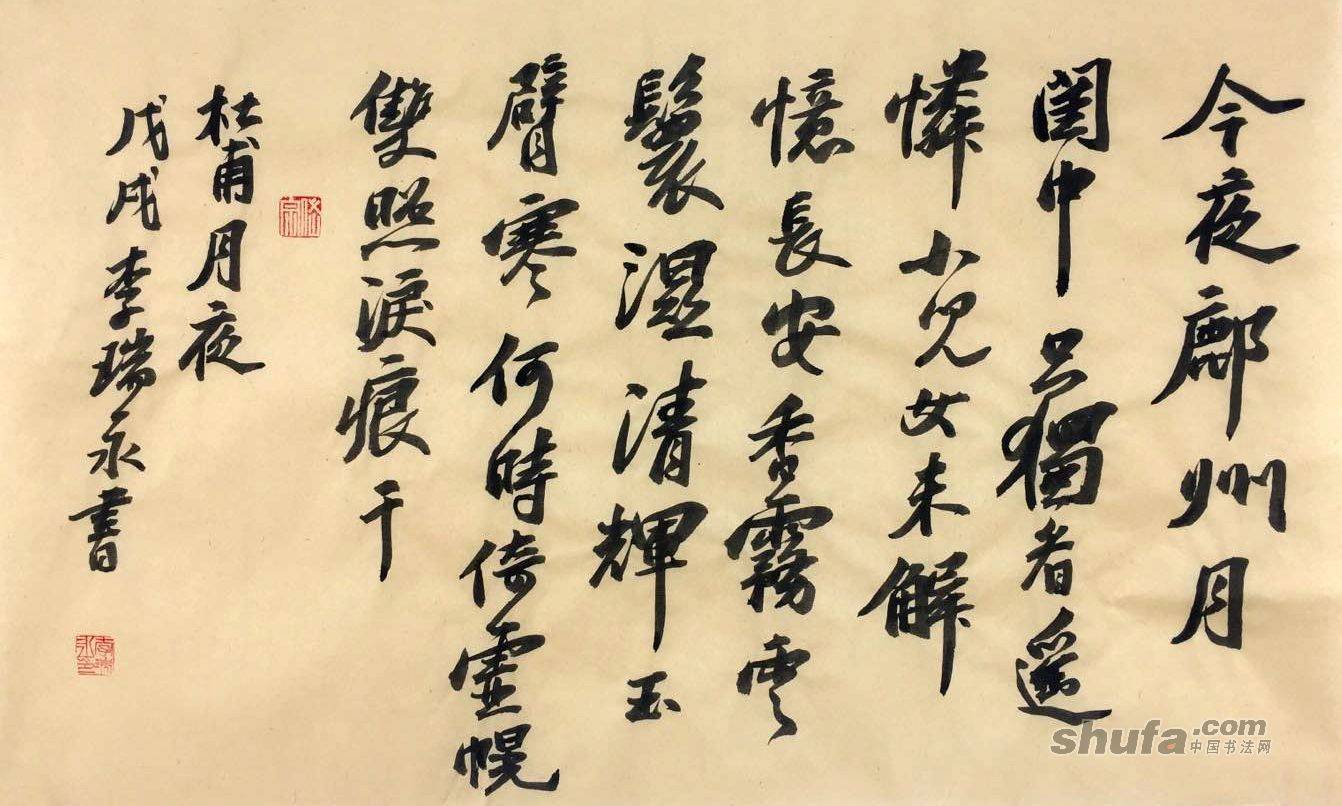 今夜鄜州月
閨中只獨看遥
憐小兒女未解
憶長安香霧雲
鬟濕清輝玉
臂寒何時倚虛幌
雙照淚痕干
杜甫月夜
戊戌李瑞永書
shufa.com
中国书法网